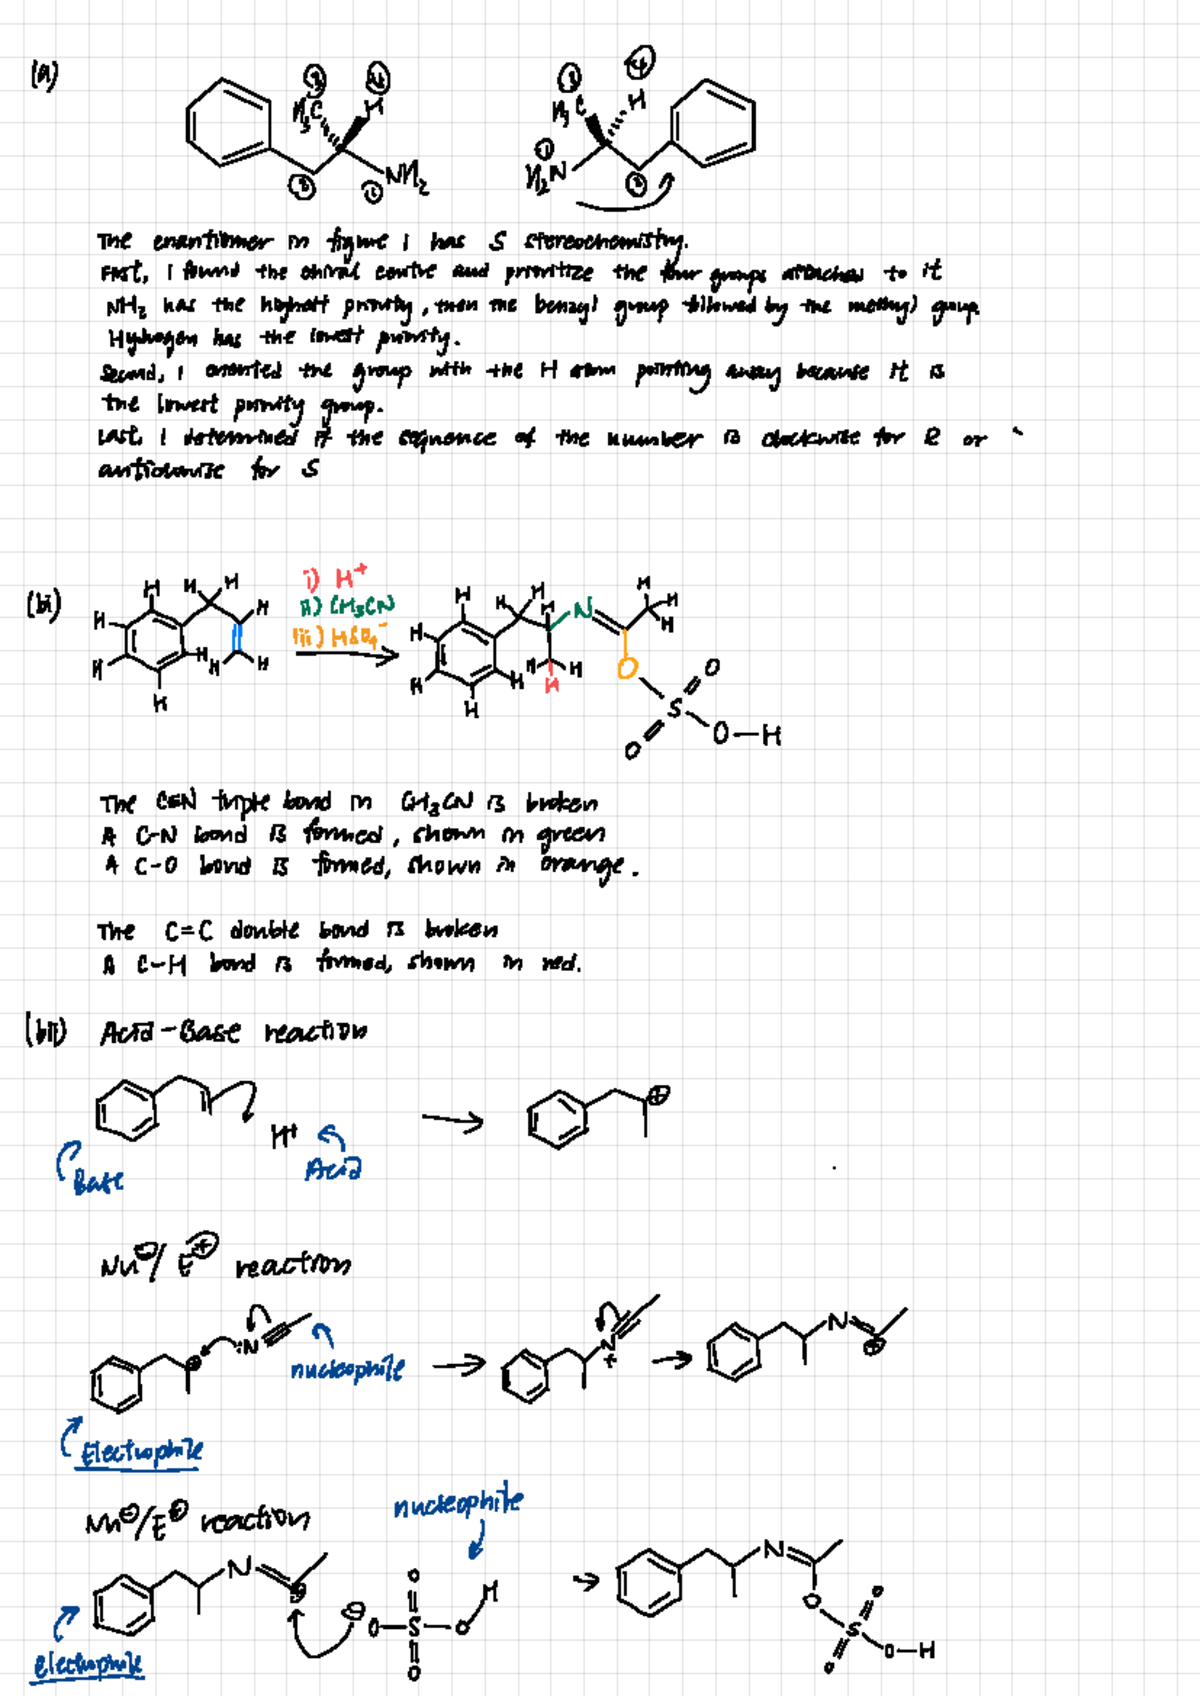 (a)
③ ④ ③ ④
H₃C H H₃C H
① H₂N
② ① NH₂ ②
The enantiomer in figure 1 has S stereochemistry.
First, I found the chiral centre and prioritize the four groups attached to it
NH₂ has the highest priority, then the benzyl group followed by the methyl group.
Hydrogen has the lowest priority.
Second, I oriented the group with the H atom pointing away because it is
the lowest priority group.
Last, I determined if the sequence of the number is clockwise for R or
anticlockwise for S
(bi)
i) H⁺
ii) CH₃CN
iii) HSO₄⁻
H H H H H H H H H H
H H H H N H H H
H H H H H H H O O
H S
O O—H
The C≡N triple bond in CH₃CN is broken
A C-N bond is formed, shown in green
A C-O bond is formed, shown in orange.
The C=C double bond is broken
A C-H bond is formed, shown in red.
(bii) Acid-Base reaction
H⁺ ⊕
Base Acid
Nu⊖/E⊕ reaction
⊕ :N nucleophile N + N ⊕
Electrophile
Nu⊖/E⊕ reaction nucleophile
N ⊕ ⊖O S O O O H N O S O O O-H
electrophile